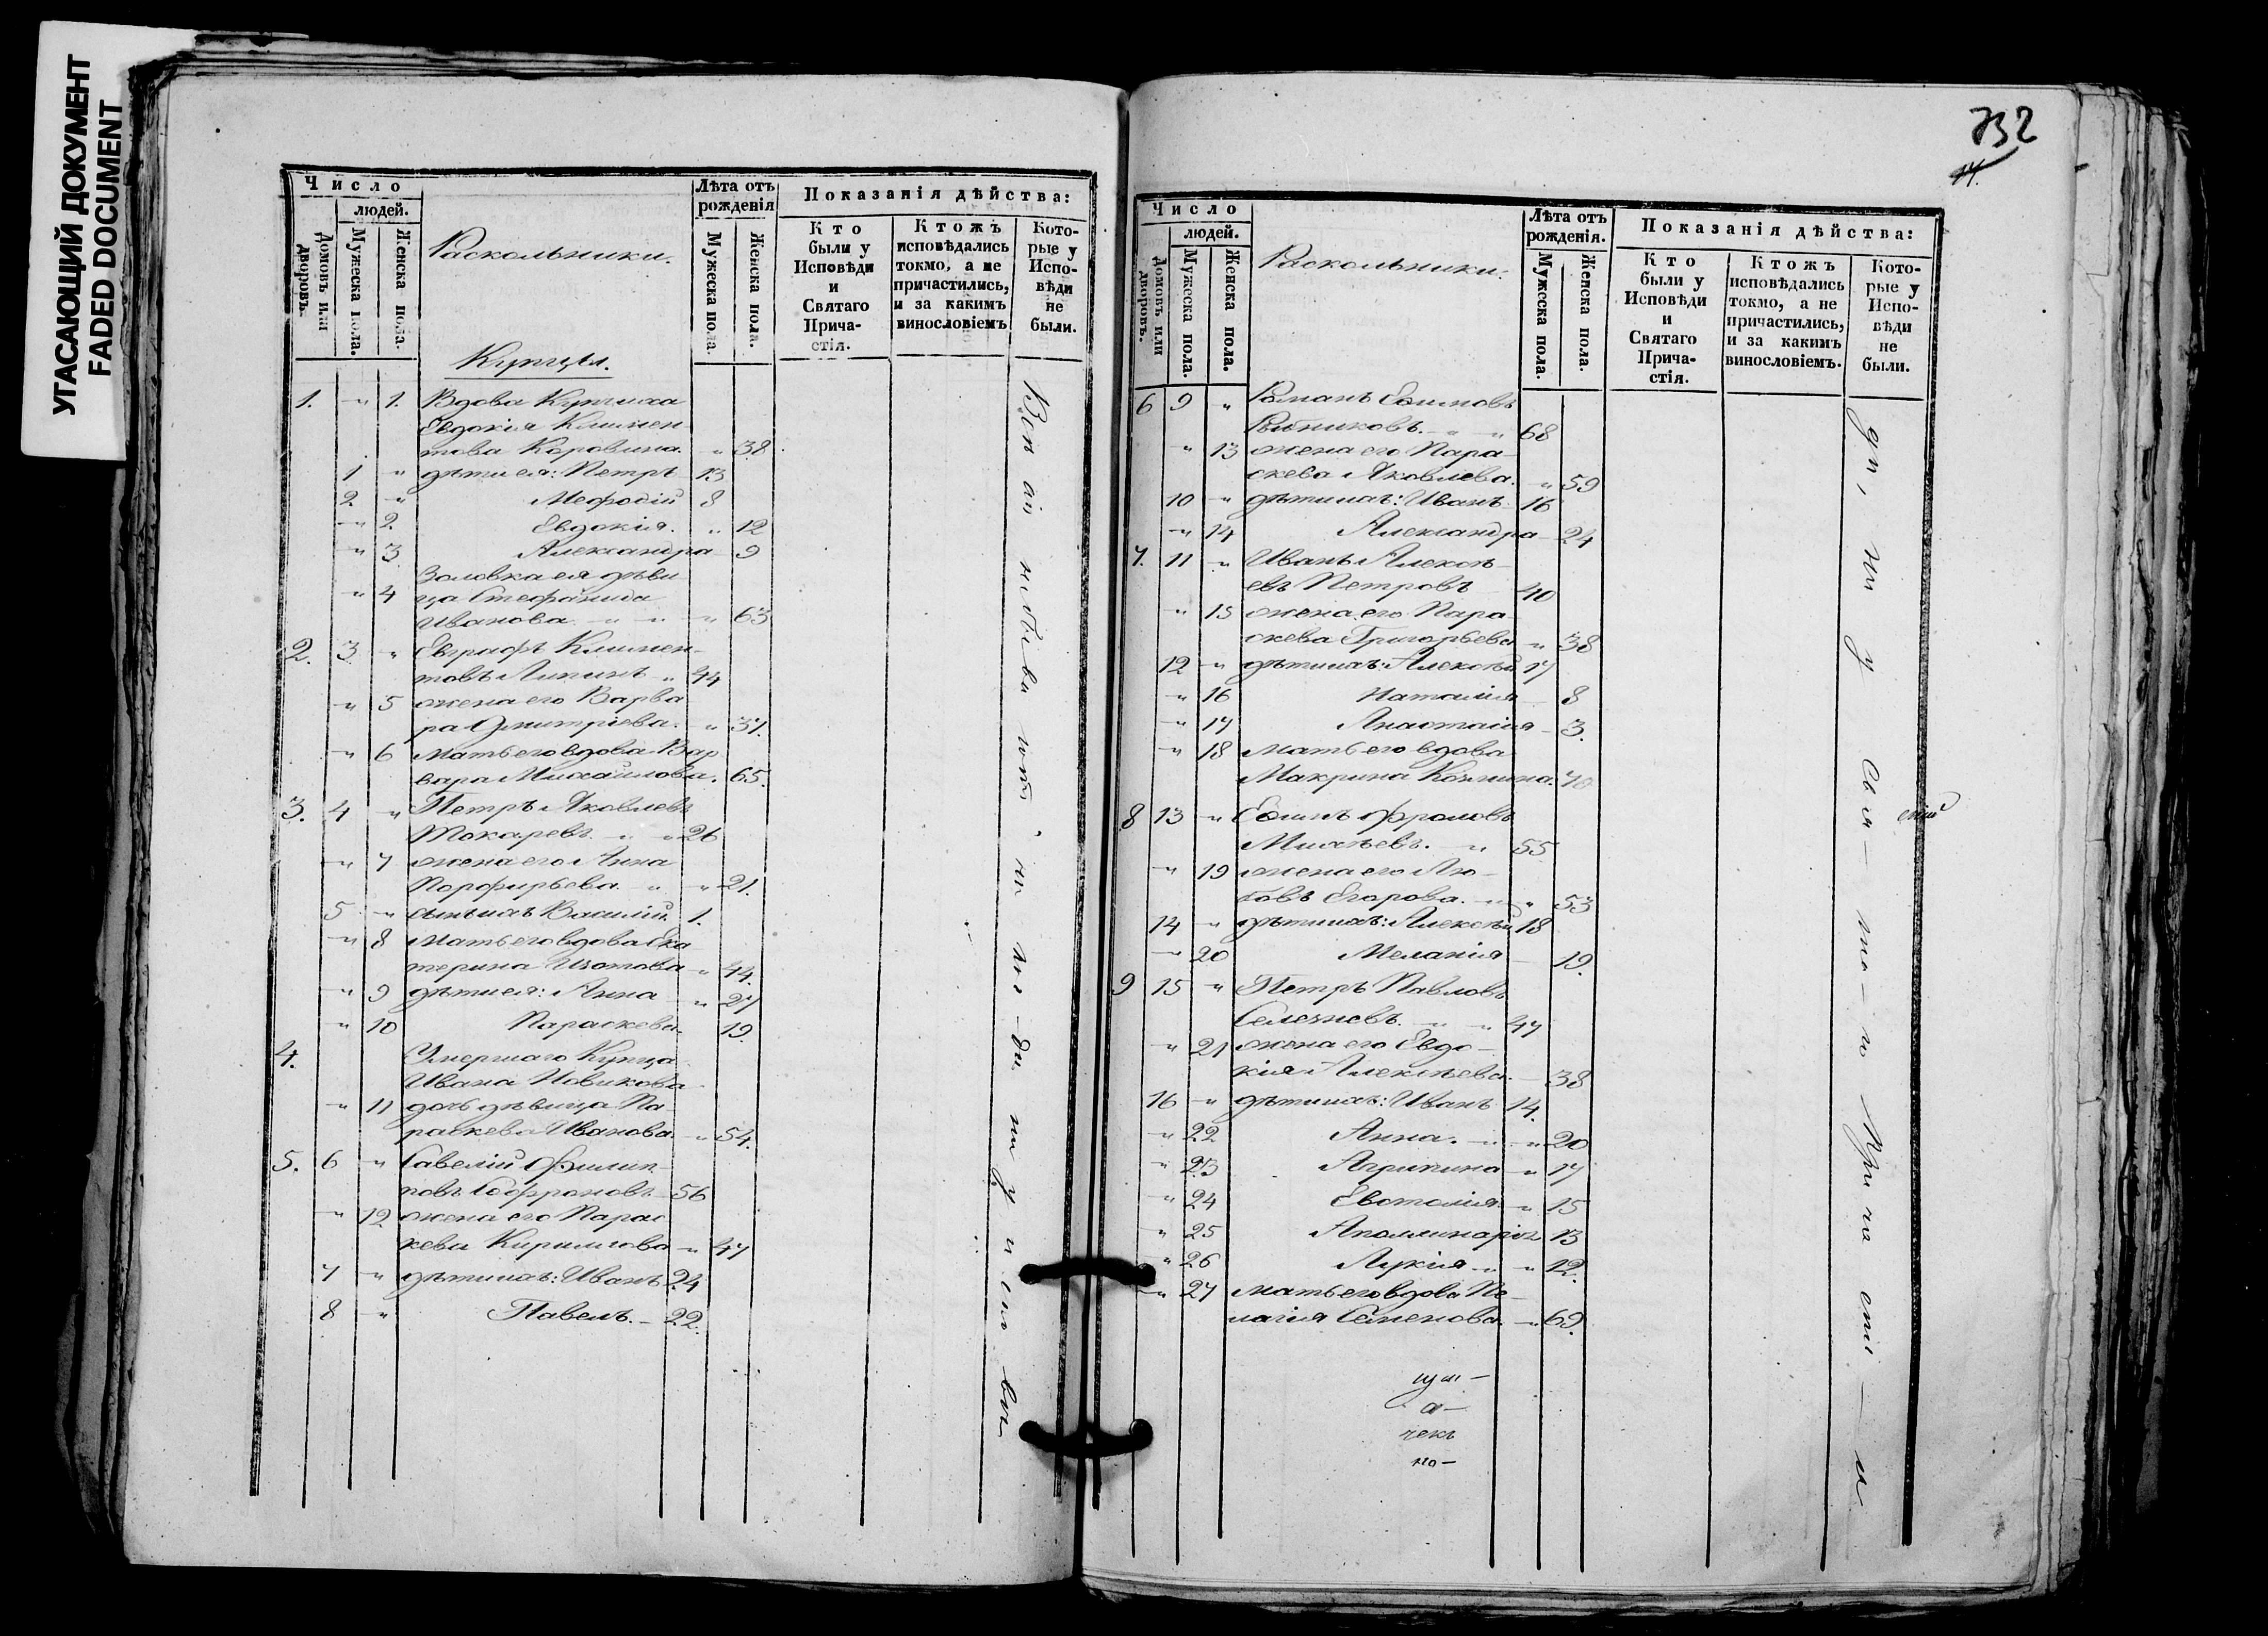 УГАСАЮЩИЙ ДОКУМЕНТ
FADED DOCUMENT
Число
людей.
Домовъ или дворовъ.
Мужеска пола.
Женска пола.
Раскольники.
Лѣта отъ рожденія
Мужеска пола.
Женска пола.
Показанія дѣйства:
Кто были у Исповѣди и Святаго Прича-стія.
Ктожъ исповѣдались токмо, а не причастились, и за какимъ винословіемъ
Кото-рые у Испо-вѣди не были.
Купцы.
1. " 1. Вдова Купчиха
Евдокія Климен
това Коровина. " 38
1 " дѣти ея: Петръ 13
2 " Мефодій 8
" 2. Евдокія. " 12
" 3 Александра 9
Золовка ея дѣви
" 4 ца Стефанида
Иванова " " " 63
2. 3 " Евграфъ Климен-
товъ Липинъ " 44
" 5 жена его Варва
ра Дмитріева. " 37.
" 6 мать его вдова Вар
вара Михайлова. 65.
3. 4 " Петръ Яковлевъ
Токаревъ. " " 26
" 7 жена его Анна
Порфирьева " " 21.
5 " сынъ ихъ Василій 1.
" 8 мать его вдова Ека
терина Изотова " 44.
" 9 дѣти ея: Анна " 27
" 10 Параскева. 19.
4. Умершаго Купца
Ивана Новикова
" 11 дочь дѣвица Па
раскева Иванова. " 54.
5. 6 " Савелій Филип-
повъ Софроновъ 56
" 12 жена его Парас
кева Кирилова " 47
7 " дѣти ихъ: Иванъ 24
8 " Павелъ. 22.
732
14.
Число
людей.
Домовъ или дворовъ.
Мужеска пола.
Женска пола.
Раскольники.
Лѣта отъ рожденія.
Мужеска пола.
Женска пола
Показанія дѣйства:
Кто были у Исповѣди и Святаго Прича-стія.
Ктожъ исповѣдались токмо, а не причастились, и за какимъ винословіемъ.
Кото-рые у Испо-вѣди не были.
6 9 " Романъ Ефимовъ
" " 68
" 13 жена его Пара
скева Яковлева. " 59
10 " дѣти ихъ: Иванъ 16
" 14 Александра 24
7. 11 " Иванъ Алексѣ-
евъ Петровъ 40
" 15 жена его Пара
скева Григорьева " 38
12 " дѣти ихъ: Алексѣй 17
" 16 Наталія 8
" 17 Анастасія 3.
" 18 мать его вдова
Макрина 70
8 13 " Ефимъ Фроловъ
Михѣевъ. " 55
" 19 жена его Лю-
бовь Егорова. " " 53
14 " дѣти ихъ: Алексѣй 18
" 20 Меланія 19.
9 15 " Петръ Павловъ
Селезневъ. " " 47
" 21 жена его Евдо-
кія Алексѣева. 38
16 " дѣти ихъ: Иванъ 14.
" 22 Анна. " " 20
" 23 Агрипина " 17
" 24 Евстолія. " 15
" 25 13
" 26 Лукія " " 12.
" 27 мать его вдова Пе-
лагія Семенова. " 69.